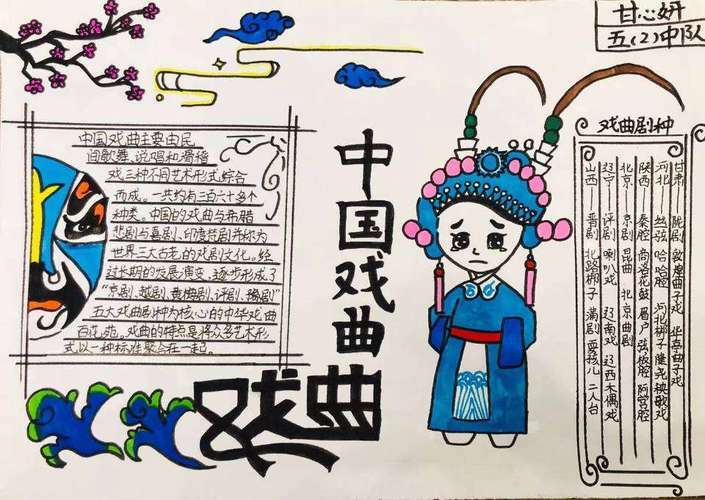 甘心妍
五(2)中队
中国戏曲主要由民
间歌舞、说唱和滑稽
戏三种不同艺术形式综合
而成。一共约有三百六十多个
种类。中国的戏曲与希腊
悲剧与喜剧、印度梵剧并称为
世界三大古老的戏剧文化。经
过长期的发展演变,逐步形成了
"京剧、越剧、黄梅剧、评剧、豫剧"
五大戏曲剧种为核心的中华戏曲
百花苑。戏曲的特点是将众多艺术形
式以一种标准聚合在一起。
中国戏曲
戏曲
戏曲剧种
甘肃——陇剧 敦煌曲子戏 华亭曲子戏
河北——丝弦 哈哈腔 河北梆子 隆尧秧歌戏
陕西——秦腔 商洛花鼓 眉户 弦板腔 阿宫腔
北京——京剧 昆曲 北京曲剧
辽宁——评剧 喇叭戏 辽南戏 辽西木偶戏
山西——晋剧 北路梆子 剧 耍孩儿 二人台